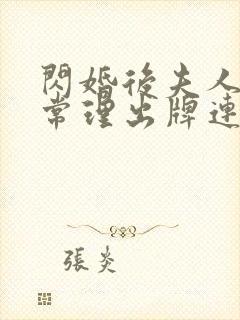 閃婚後夫人
常理出牌連
張炎